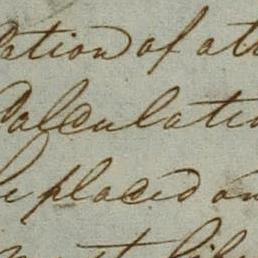 ation of att
Calculatio
be placed on